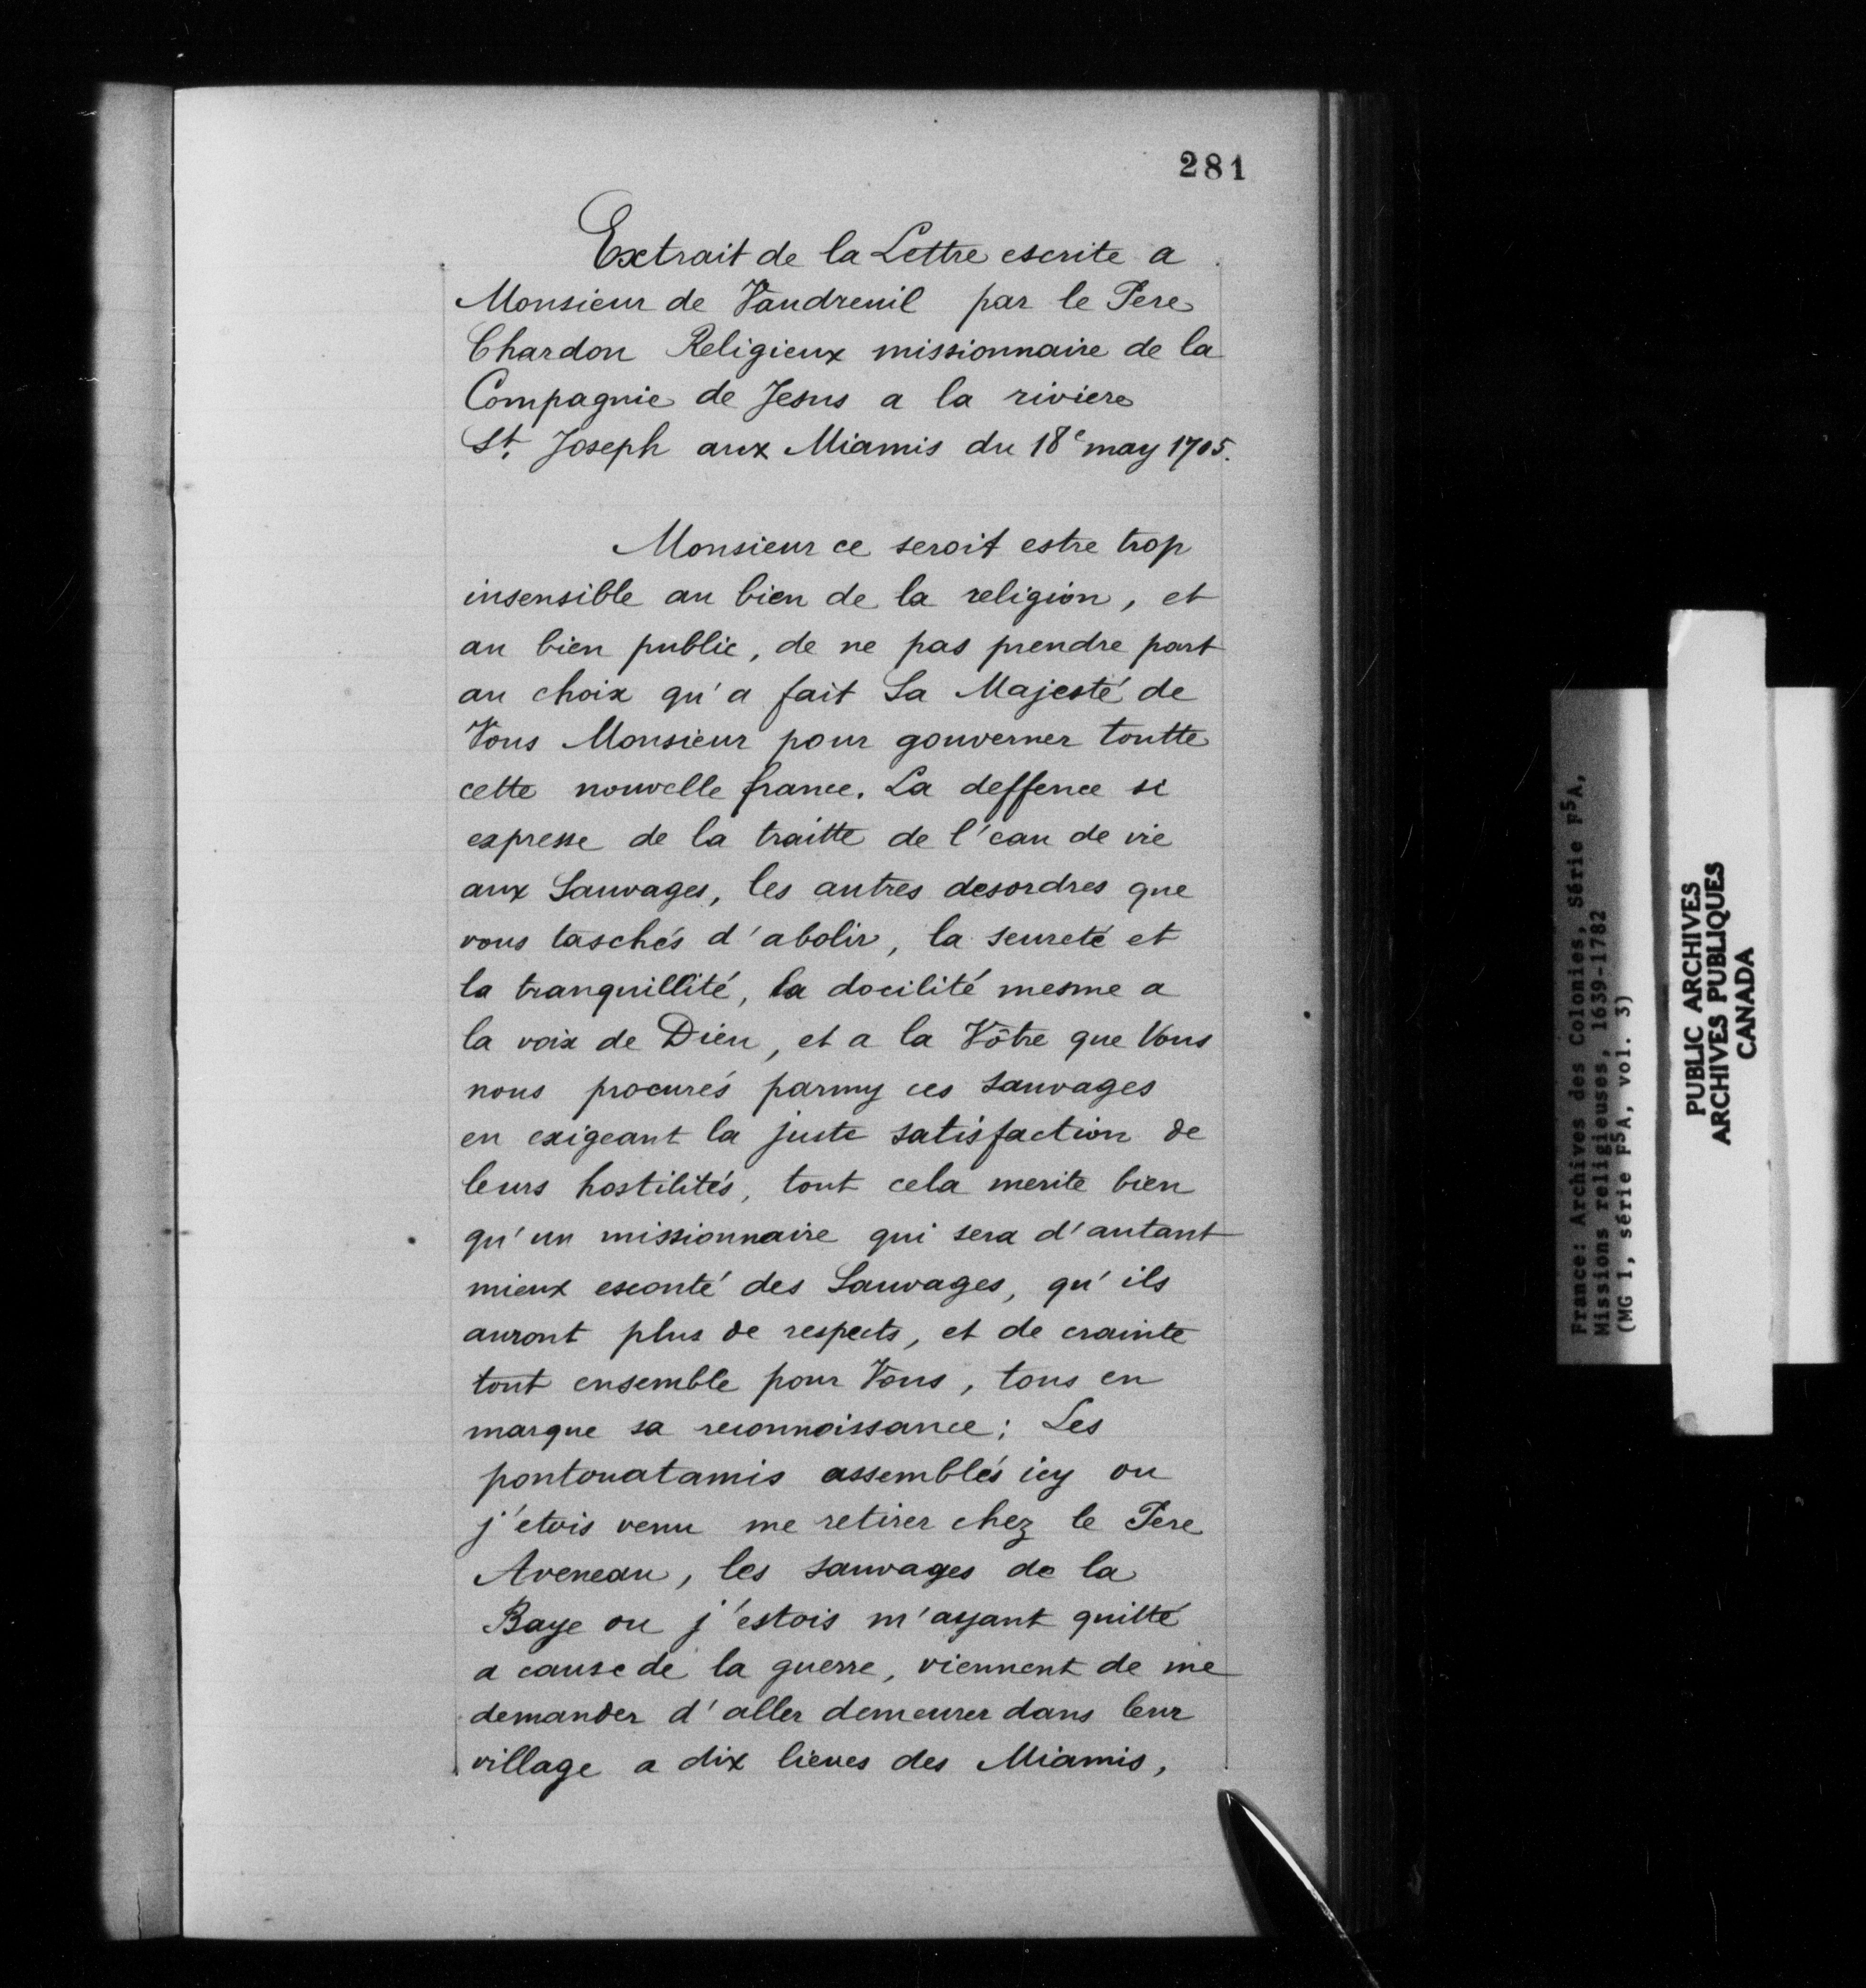 281
Extrait de la Lettre escrite a
Monsieur de Vaudreuil par le Pere
Chardon Religieux missionnaire de la
Compagnie de Jesus a la riviere
St. Joseph aux Miamis du 18e may 1705.
Monsieur ce seroit estre trop
insensible au bien de la religion, et
au bien public, de ne pas prendre part
au choix qu'a fait Sa Majesté de
Vous Monsieur pour gouverner toutte
cette nouvelle france. La deffence si
expresse de la traitte de l'eau de vie
aux Sauvages, les autres desordres que
vous taschés d'abolir, la seureté et
la tranquillité, la docilité mesme a
la voix de Dieu, et a la Vôtre que Vous
nous procurés parmy ces Sauvages
en exigeant la juste satisfaction de
leurs hostilités, tout cela merite bien
qu'un missionnaire qui sera d'autant
mieux escouté des Sauvages, qu'ils
auront plus de respects, et de crainte
tout ensemble pour Vous, tous en
marque sa reconnoissance: Les
poutouatamis assemblés icy ou
j'etois venu me retirer chez le Pere
Aveneau, les sauvages de la
Baye ou j'estois m'ayant quitté
a cause de la guerre, viennent de me
demander d'aller demeurer dans leur
village a dix lieues des Miamis,
France: Archives des Colonies, Série F5A,
Missions religieuses, 1639-1782
(MG 1, série F5A, vol. 3)
PUBLIC ARCHIVES
ARCHIVES PUBLIQUES
CANADA